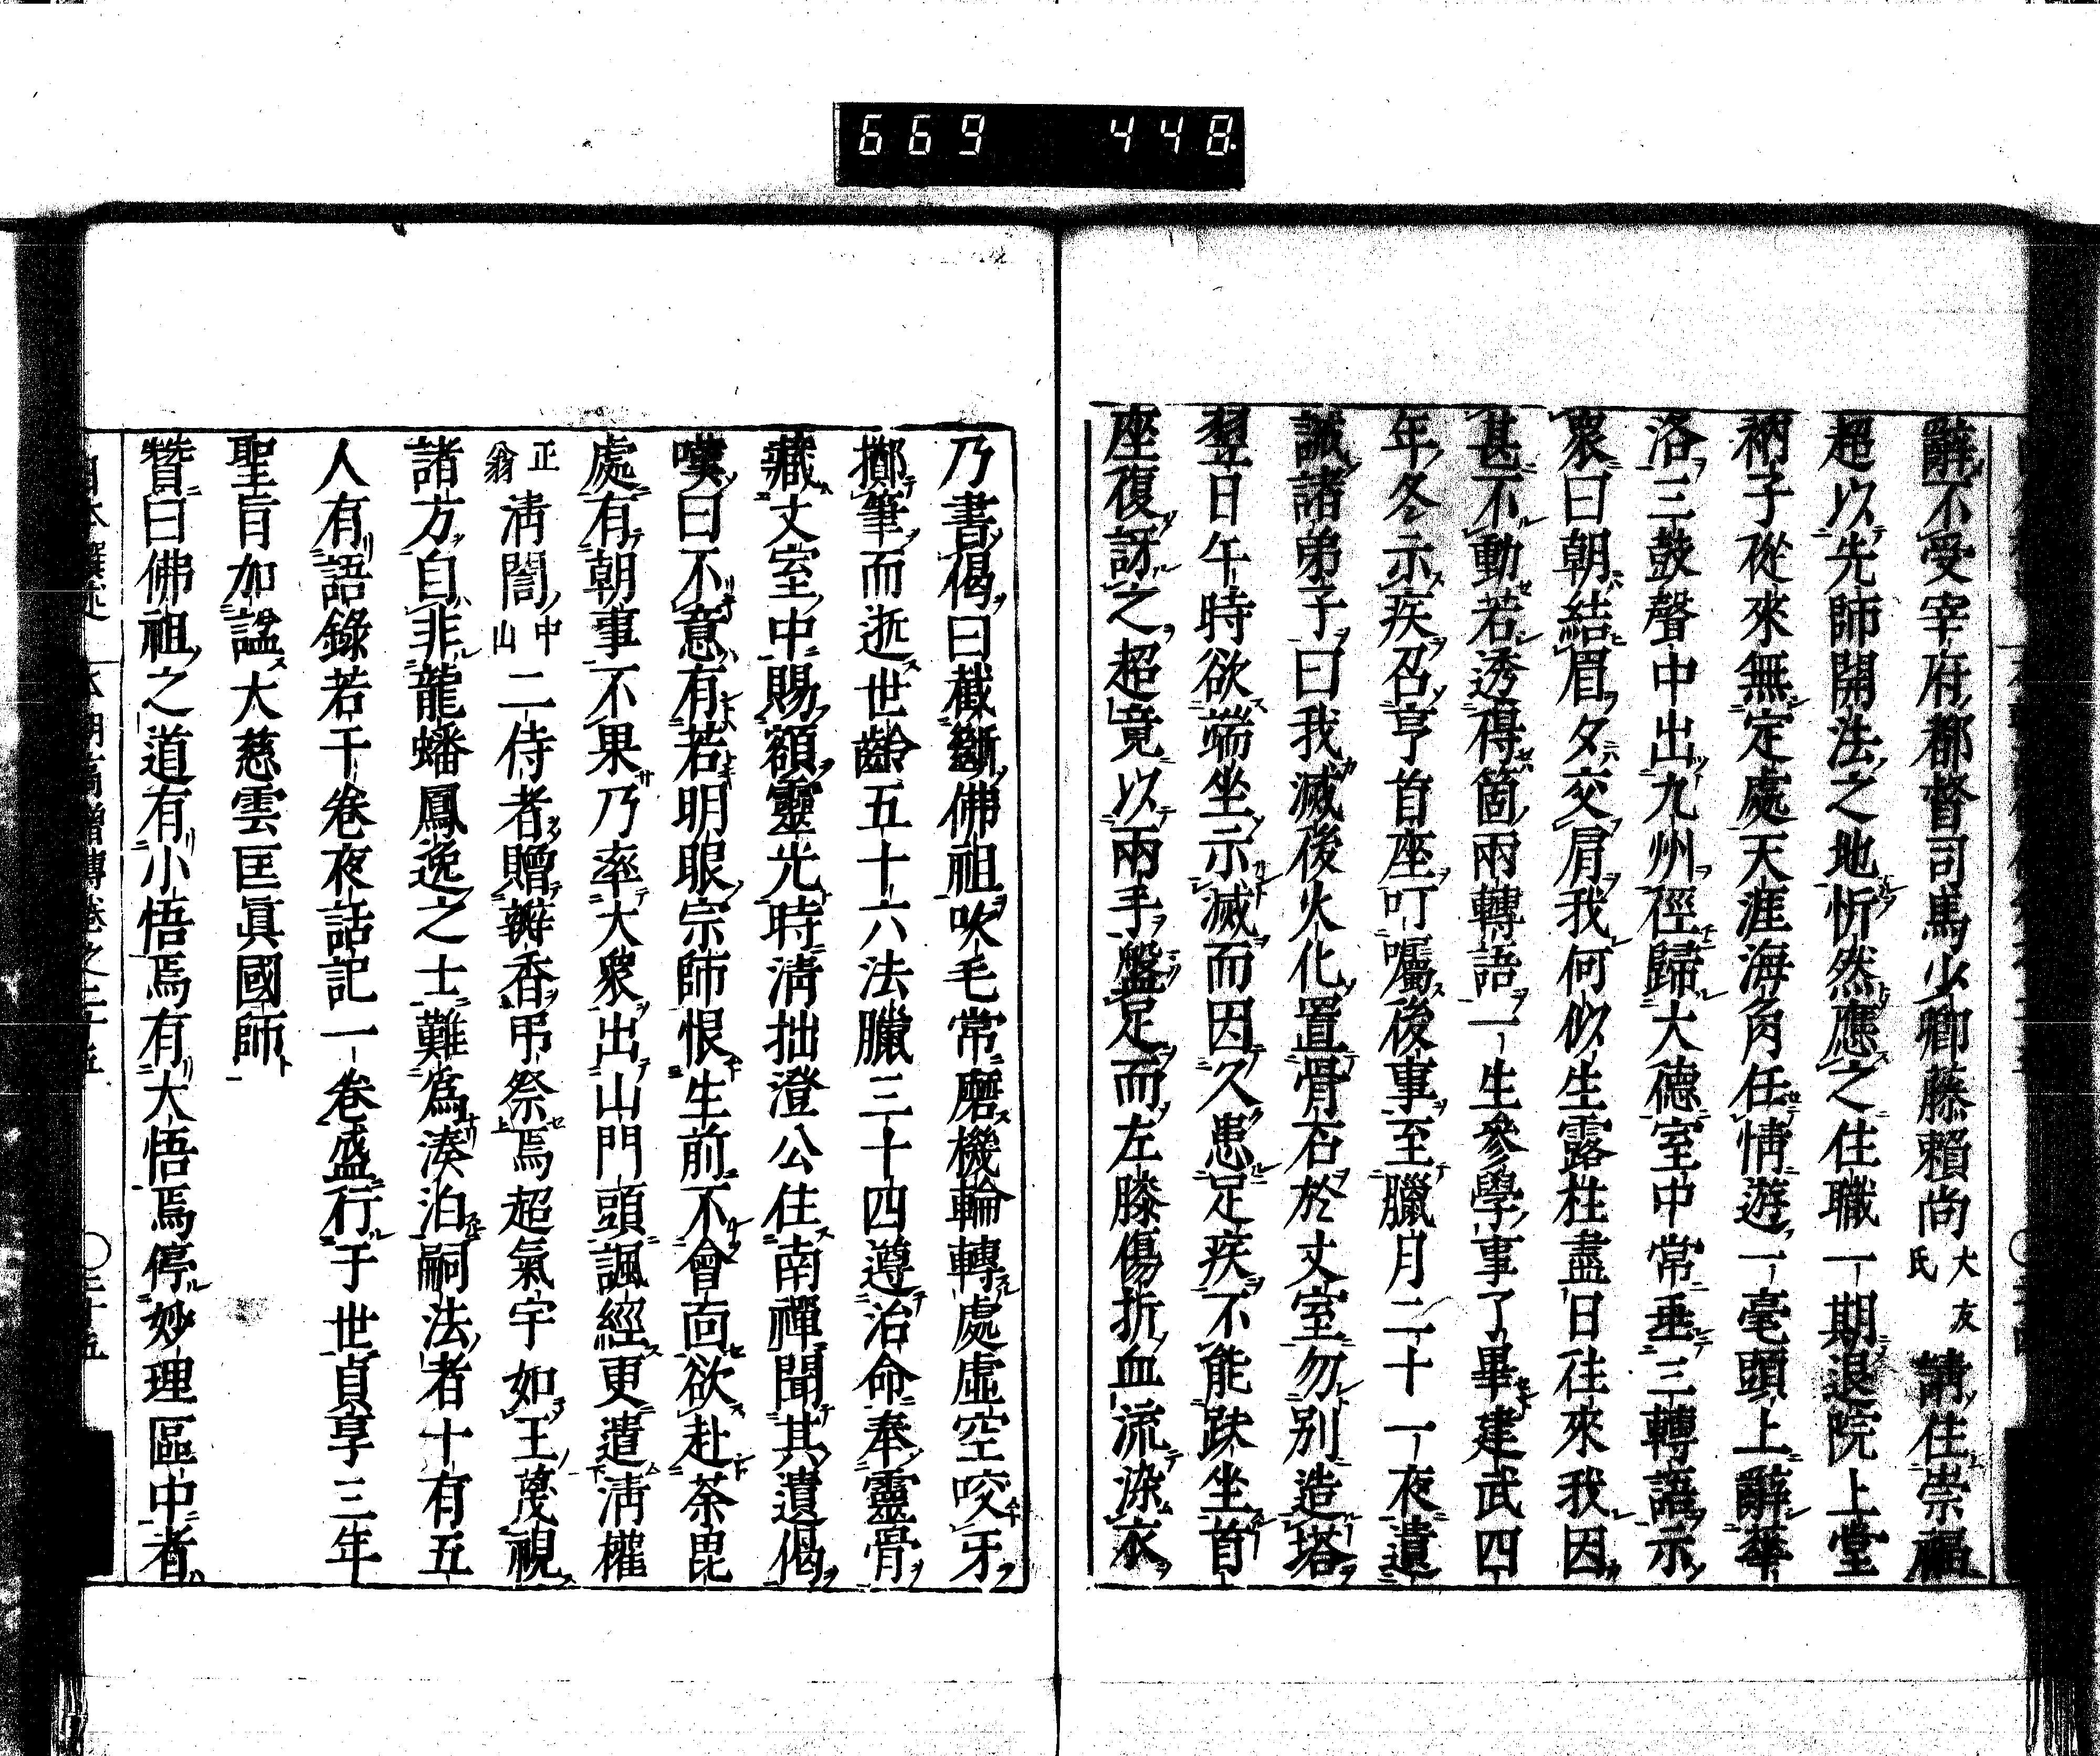 669 448
辭不受宰府都督司馬少卿藤賴尚大友氏請住崇福
超以先師開法之地忻然應之住職一期退院上堂
衲子從來無定處天涯海角任情遊一毫頭上辭華
洛三鼓聲中出九州徑歸大德室中常垂三轉語示
衆曰朝結眉夕交肩我何似生露柱盡日往來我因
甚不動若透得箇兩轉語一生參學事了畢建武四
年冬示疾召亨首座叮囑後事至臘月二十一夜遺
誡諸弟子曰我滅後火化置骨石於丈室勿別造塔
翌日午時欲端坐示滅而因久患足疾不能趺坐首
座復訝之超竟以兩手盤足而左膝傷折血流染衣
乃書偈曰截斷佛祖吹毛常磨機輪轉處虛空咬牙
擲筆而逝世齡五十六法臘三十四遵治命奉靈骨
藏丈室中賜額靈光時淸拙澄公住南禪聞其遺偈
嘆曰不意有若明眼宗師恨生前不會面欲赴荼毘
處有朝事不果乃率大衆出山門頭諷經更遣淸權
正翁淸誾中山二侍者贈瓣香弔祭焉超氣宇如王蔑視
諸方自非龍蟠鳳逸之士難爲湊泊嗣法者十有五
人有語錄若干卷夜話記一卷盛行于世貞享三年
聖旨加諡大慈雲匡眞國師
贊曰佛祖之道有小悟焉有大悟焉停妙理區中者